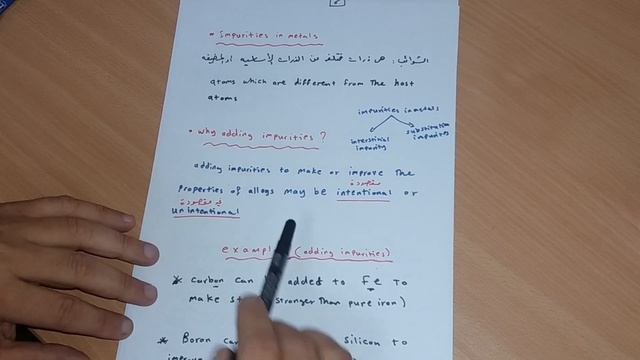 • Impurities in metals
الشوائب: هي ذرات تختلف عن الذرات الاساسيه
atoms which are different from the host
atoms
impurities in metals
interstitial
impurity
substitution
impurities
• why adding impurities?
adding impurities to make or improve the
مقصودة
properties of alloys may be intentional or
غير مقصودة
unintentional
(adding impurities)
* carbon can added to Fe to
make stronger than pure iron)
* Boron silicon to